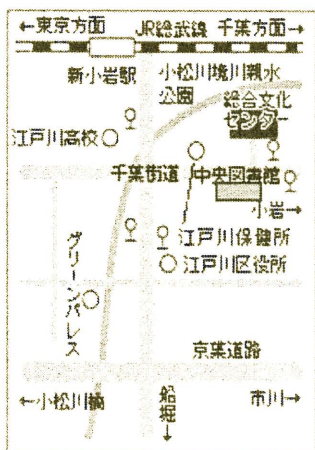 ←東京方面
JR総武線
千葉方面→
新小岩駅
小松川境川親水
公園
総合文化
センター
江戸川高校
千葉街道
中央図書館
小岩→
江戸川保健所
江戸川区役所
グリーンパレス
京葉道路
←小松川橋
船堀↓
市川→